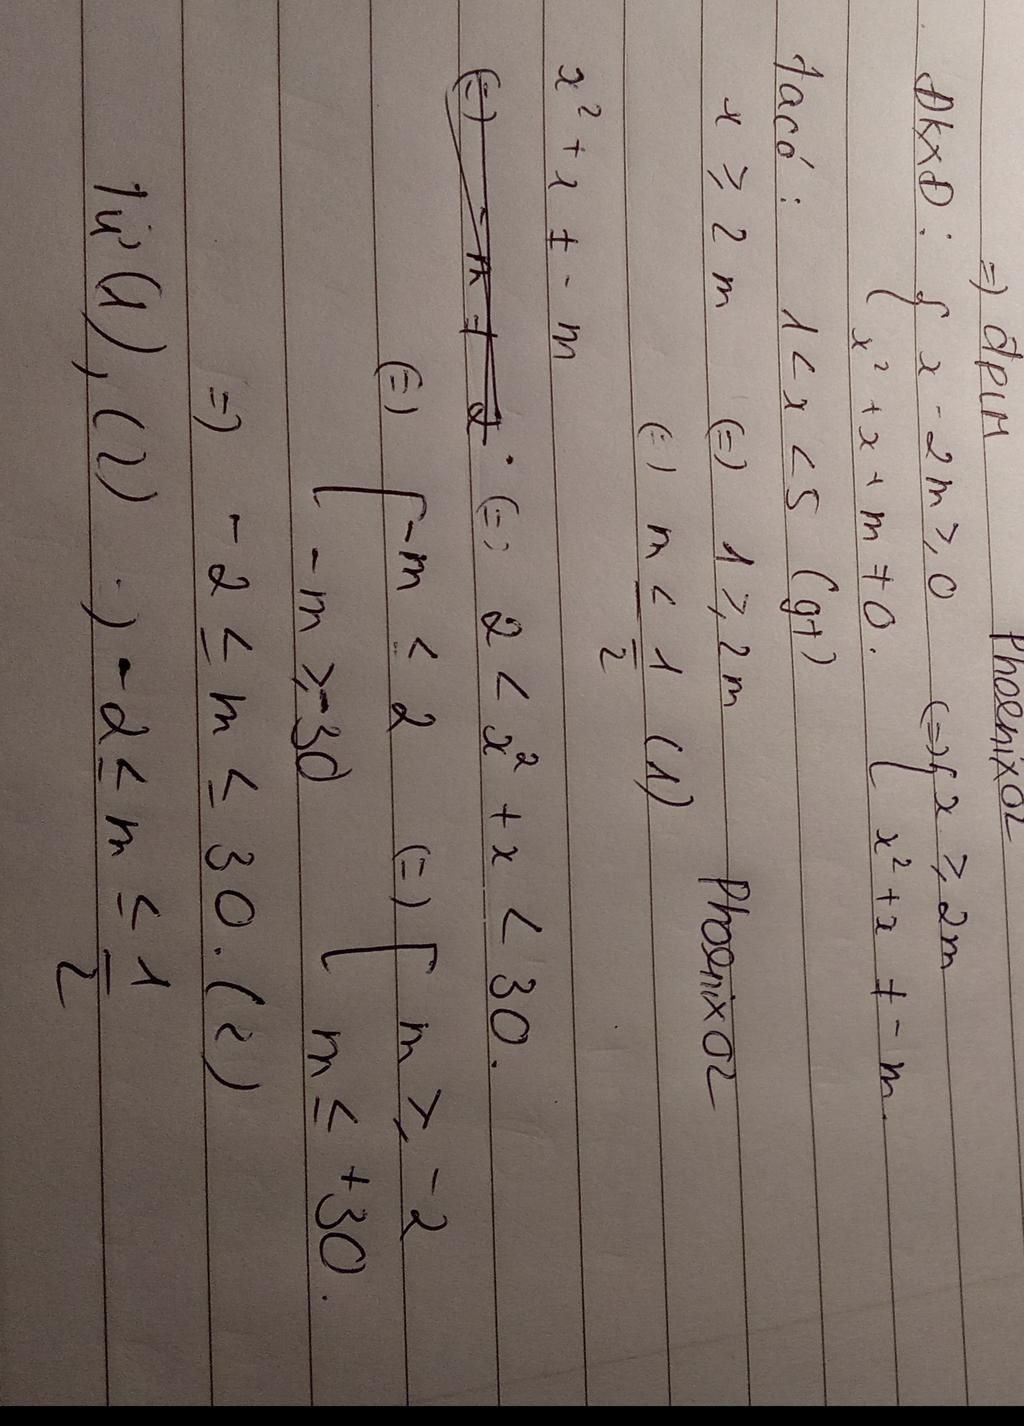 =) đpcm
Phoenix02
ĐKXĐ: { x - 2m ≥ 0 (=) { x ≥ 2m
x² + x + m ≠ 0. x² + x ≠ - m.
Ta có: 1 < x < 5 (gt)
x ≥ 2m (=) 1 ≥ 2m Phoenix02
(=) m ≤ 1/2 (1)
x² + x ≠ - m
(=) 2 < x² + x < 30.
(=) [ -m ≤ 2 (=) [ m ≥ -2
-m ≥ -30 m ≤ +30.
=) -2 ≤ m ≤ 30. (2)
Từ (1), (2) =) -2 ≤ m ≤ 1/2